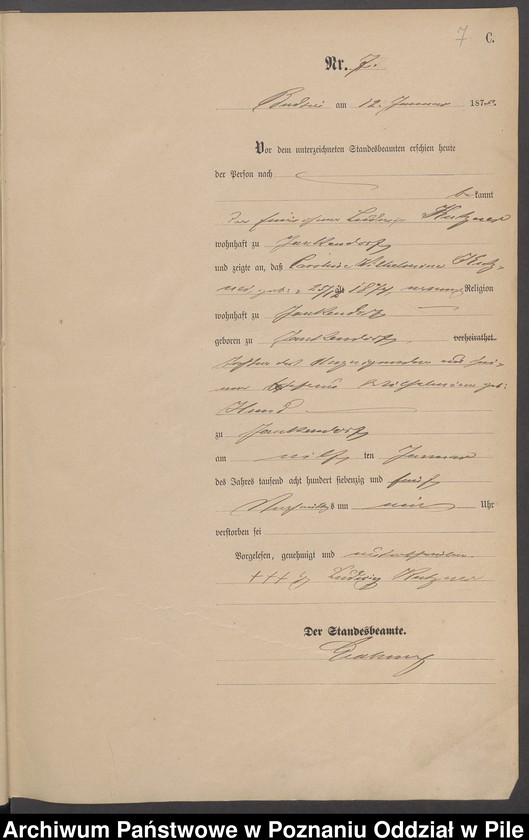 7 C.
Nr. 7.
am 12. Januar 1875.
Vor dem unterzeichneten Standesbeamten erschien heute
der Person nach
be kannt
der Ludwig Kutzner
wohnhaft zu Janкendorf
und zeigte an, daß Caroline Wilhelmine Kutz-
ner, geb: 25/12 1874, Religion
wohnhaft zu Jankendorf
geboren zu Jankendorf verheirathet
Tochter des Anzeigenden und sei-
ner Ehefrau Wilhelmine geb:
zu Jankendorf
am elf ten Januar
des Jahres tausend acht hundert siebenzig und fünf
Nachmittags um ein Uhr
verstorben sei
Vorgelesen, genehmigt und unterschrieben
+++ Ludwig Kutzner
Der Standesbeamte.
Archiwum Państwowe w Poznaniu Oddział w Pile